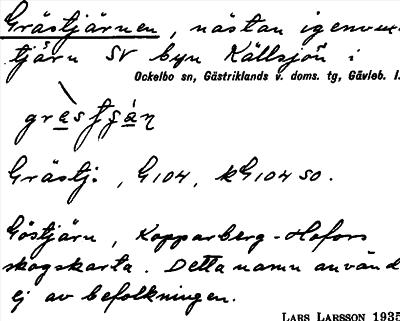 Grästjärnen, nästan igenvux-
tjärn SV byn Källsjön i
Ockelbo sn, Gästriklands v. doms. tg, Gävleb. l.
Grästj., G104, kG104 SO.
Göstjärn, Kopparberg-Hofors
skogskarta. Detta namn använd
ej av befolkningen.
LARS LARSSON 1935